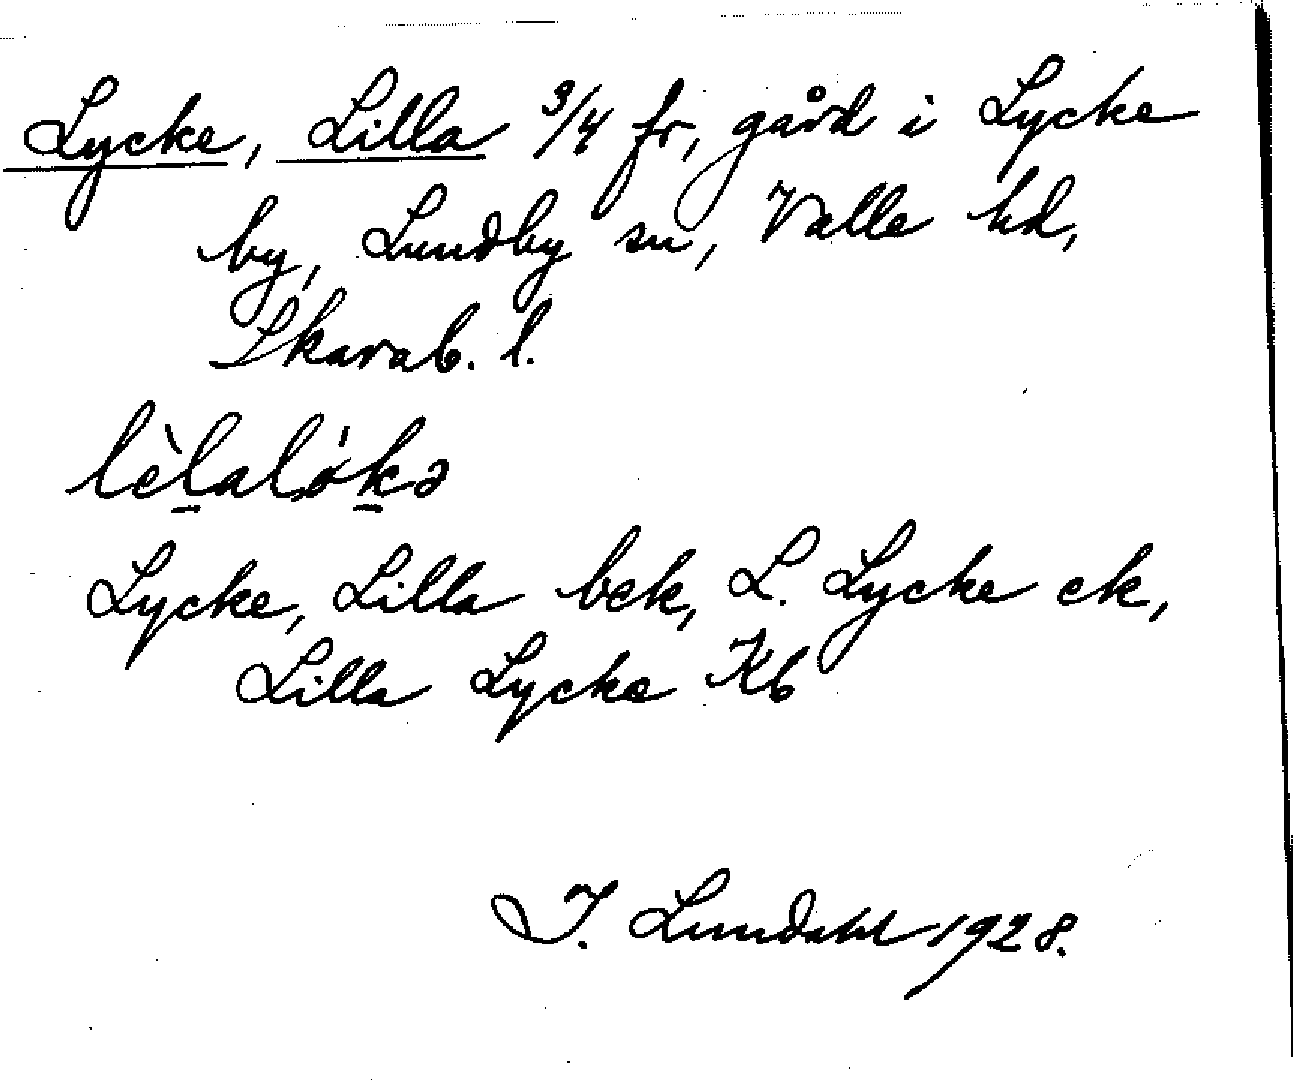 Lycke, Lilla 3/4 fr, gård i Lycke
by, Lundby sn, Valle hd,
Skarab. l.
lèlalökə
Lycke, Lilla bek, L. Lycke ek,
Lilla Lycke Kb
I. Lundahl 1928.